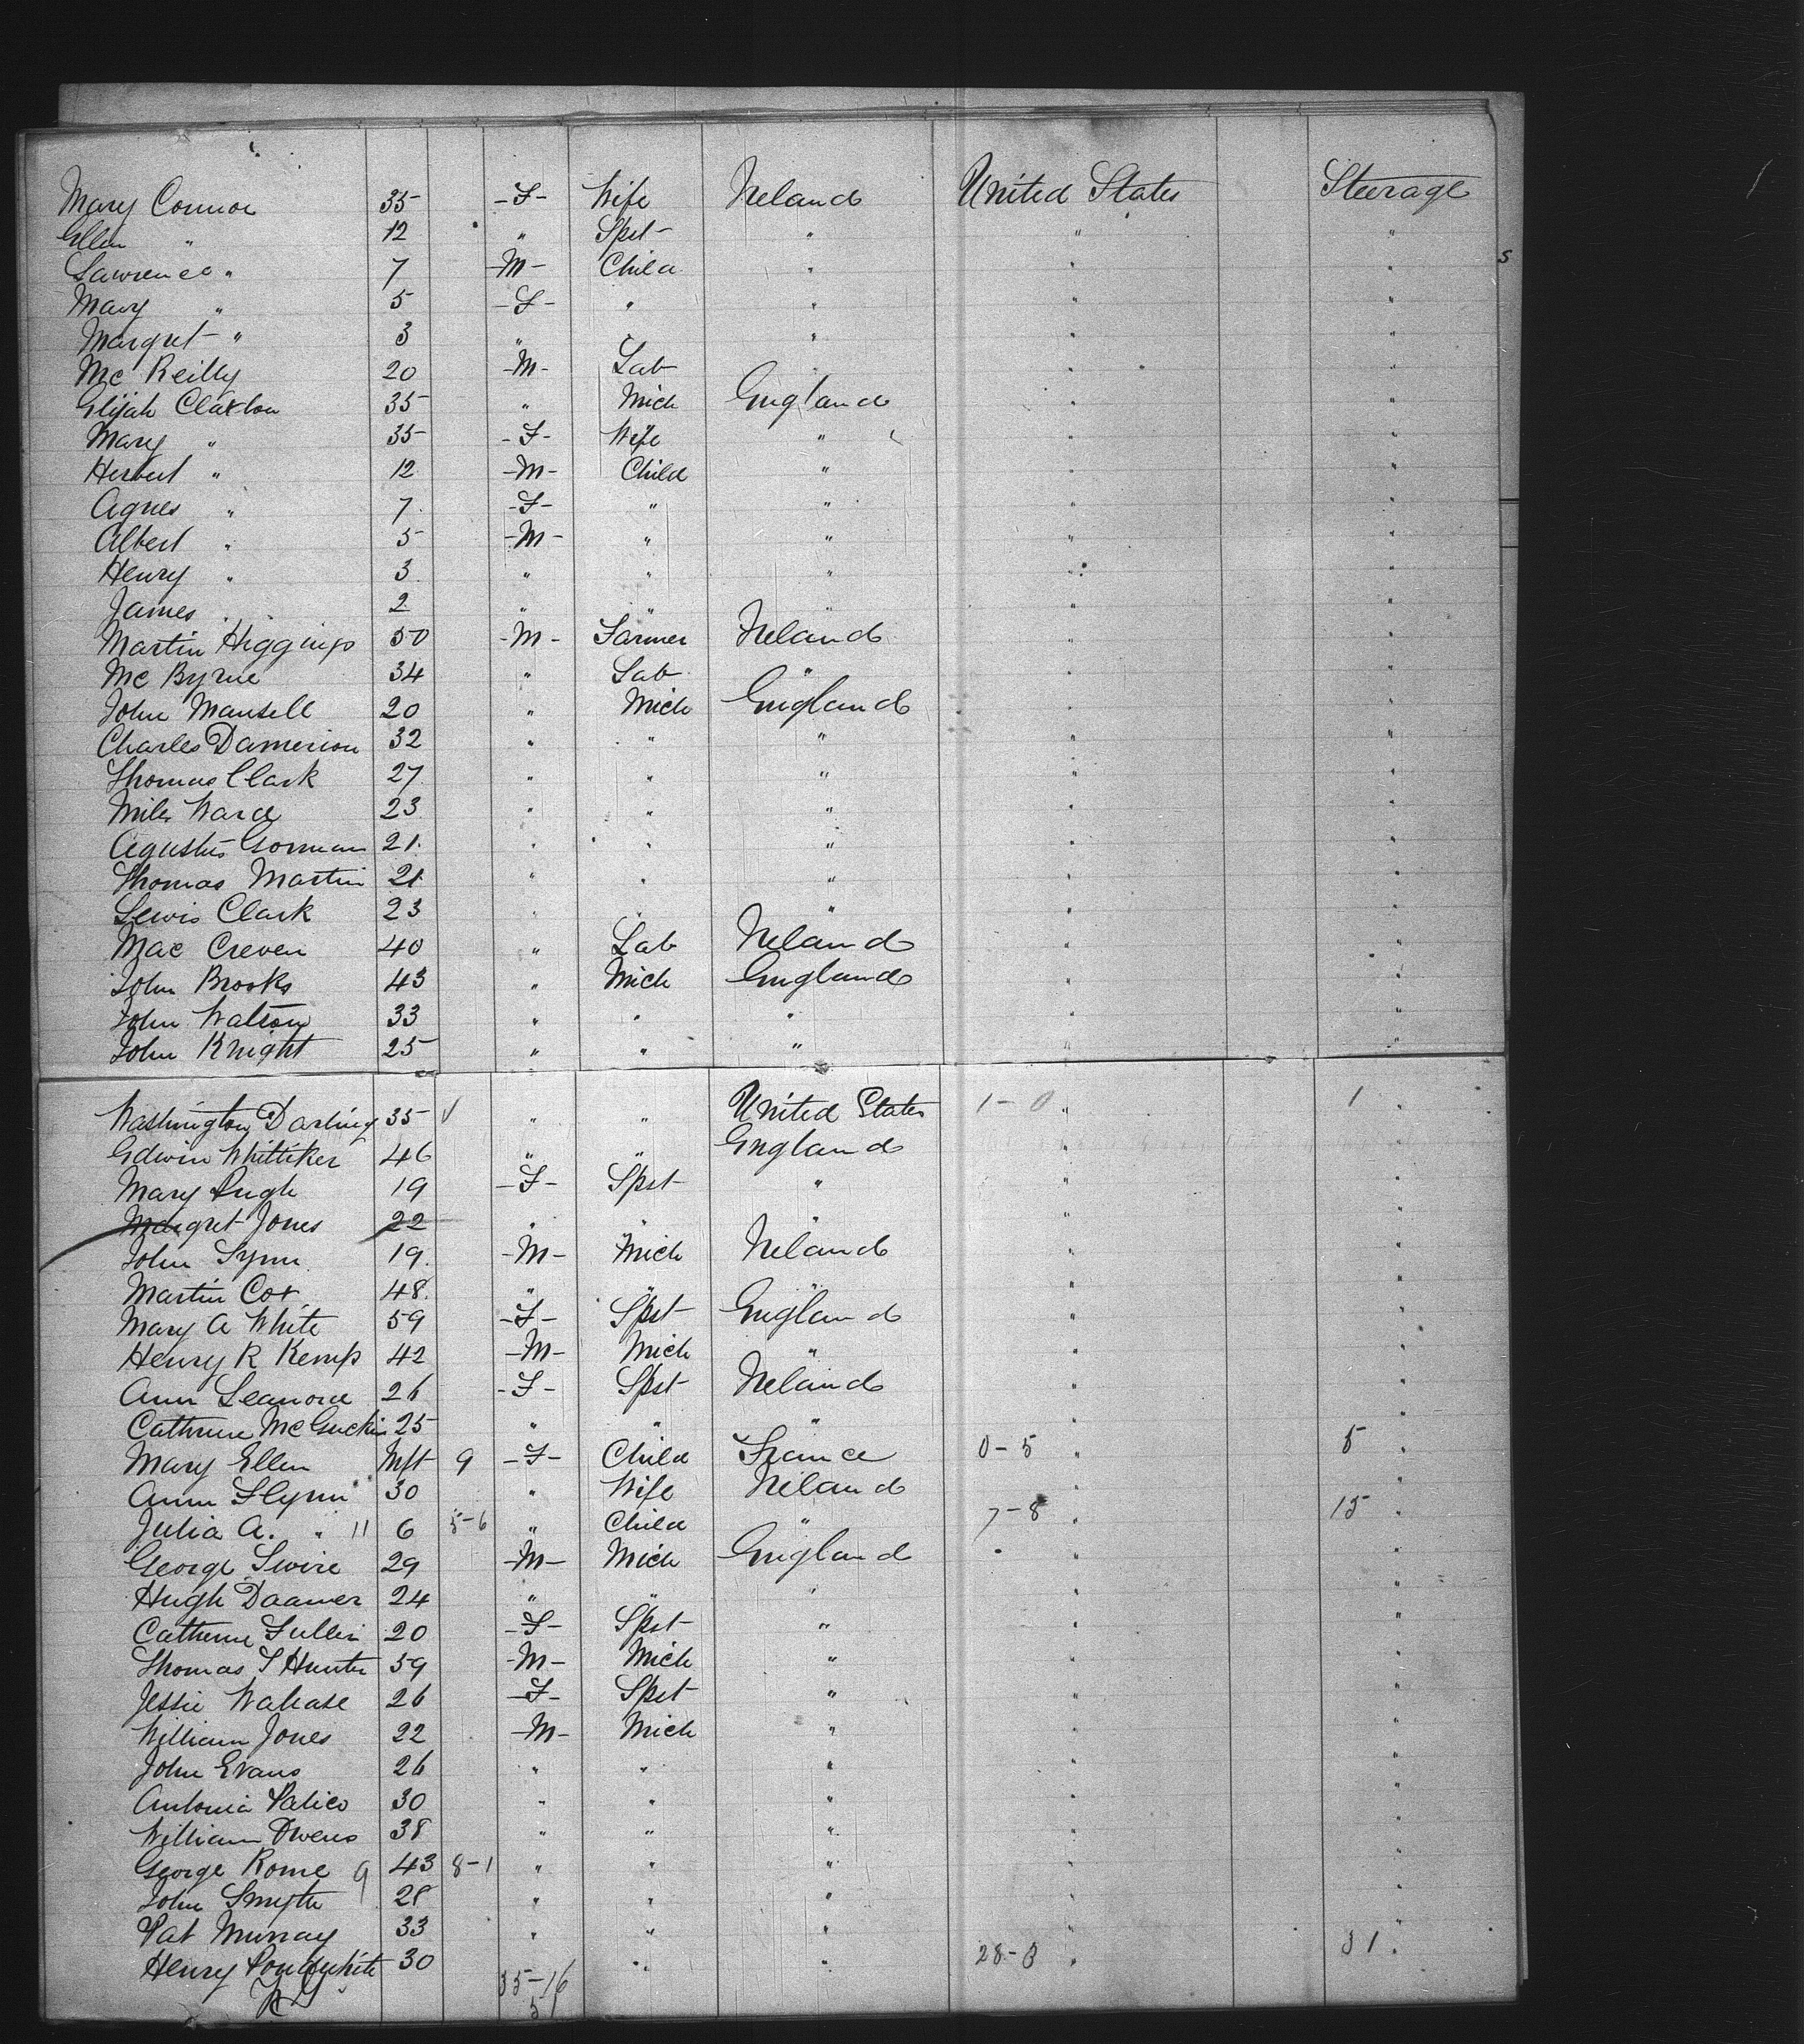 Mary Connor 35 -F- Wife Ireland United States Steerage
Ellen " 12 " Spst " " "
Lawrence " 7 -M- Child " " "
Mary " 5 -F- " " " "
Margret " 3 " " " " "
Mc Reilly 20 -M- Lab " " "
Elijah Claxton 35 " Mich England " "
Mary " 35 -F- Wife " " "
Herbert " 12 -M- Child " " "
Agnes " 7 -F- " " " "
Albert " 5 -M- " " " "
Henry " 3 " " " " "
James " 2 " " " " "
Martin Higgings 50 -M- Farmer Ireland " "
Mc Byrne 34 " Lab " " "
John Mansell 20 " Mich England " "
Charles Damerion 32 " " " " "
Thomas Clark 27 " " " " "
Miles Ward 23 " " " " "
Agustus Gorman 21 " " " " "
Thomas Martin 21 " " " " "
Lewis Clark 23 " " " " "
Mac Creven 40 " Lab Ireland " "
John Brooks 43 " Mich England " "
John Watson 33 " " " " "
John Knight 25 " " " " "
Washington Darling 35 " " United States 1-0 " 1 "
Edwin Whittiker 46 " " England " "
Mary Pugh 19 -F- Spst " " "
Margret Jones 22 " " " " "
John Lynn 19 -M- Mich Ireland " "
Martin Cox 48 " " " " "
Mary A White 59 -F- Spst England " "
Henry R Kemp 42 -M- Mich " " "
Ann Leanord 26 -F- Spst Ireland " "
Cathrine McGuckin 25 " " " " "
Mary Ellen Inft 9 -F- Child France 0-5 " 5 "
Ann Flynn 30 " Wife Ireland " "
Julia A. " 11 6 5-6 " Child " 7-8 " 15 "
George Swire 29 -M- Mich England " "
Hugh Daamer 24 " " " " "
Catherine Fuller 20 -F- Spst " " "
Thomas S Hunter 39 -M- Mich " " "
Jessie Walase 26 -F- Spst " " "
William Jones 22 -M- Mich " " "
John Evans 26 " " " " "
Antonia Palico 30 " " " " "
William Owens 38 " " " " "
George Rome 9 43 8-1 " " " " "
John Smyth 28 " " " " "
Pat Murray 33 " " " " "
Henry 30 " " 28-3 " 31 "
35-16
51